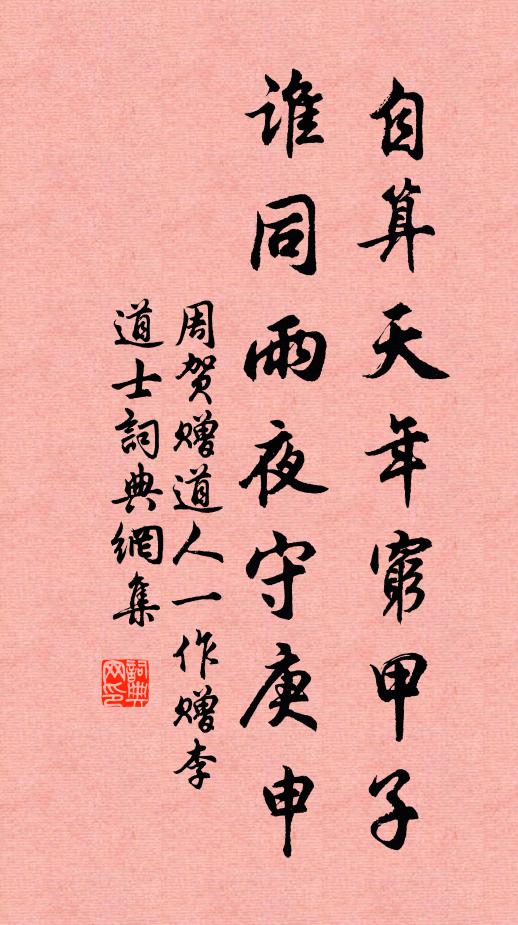 自算天年窮甲子
誰同雨夜守庚申
周贺赠道人一作赠李
道士詞典網集
詞典網印